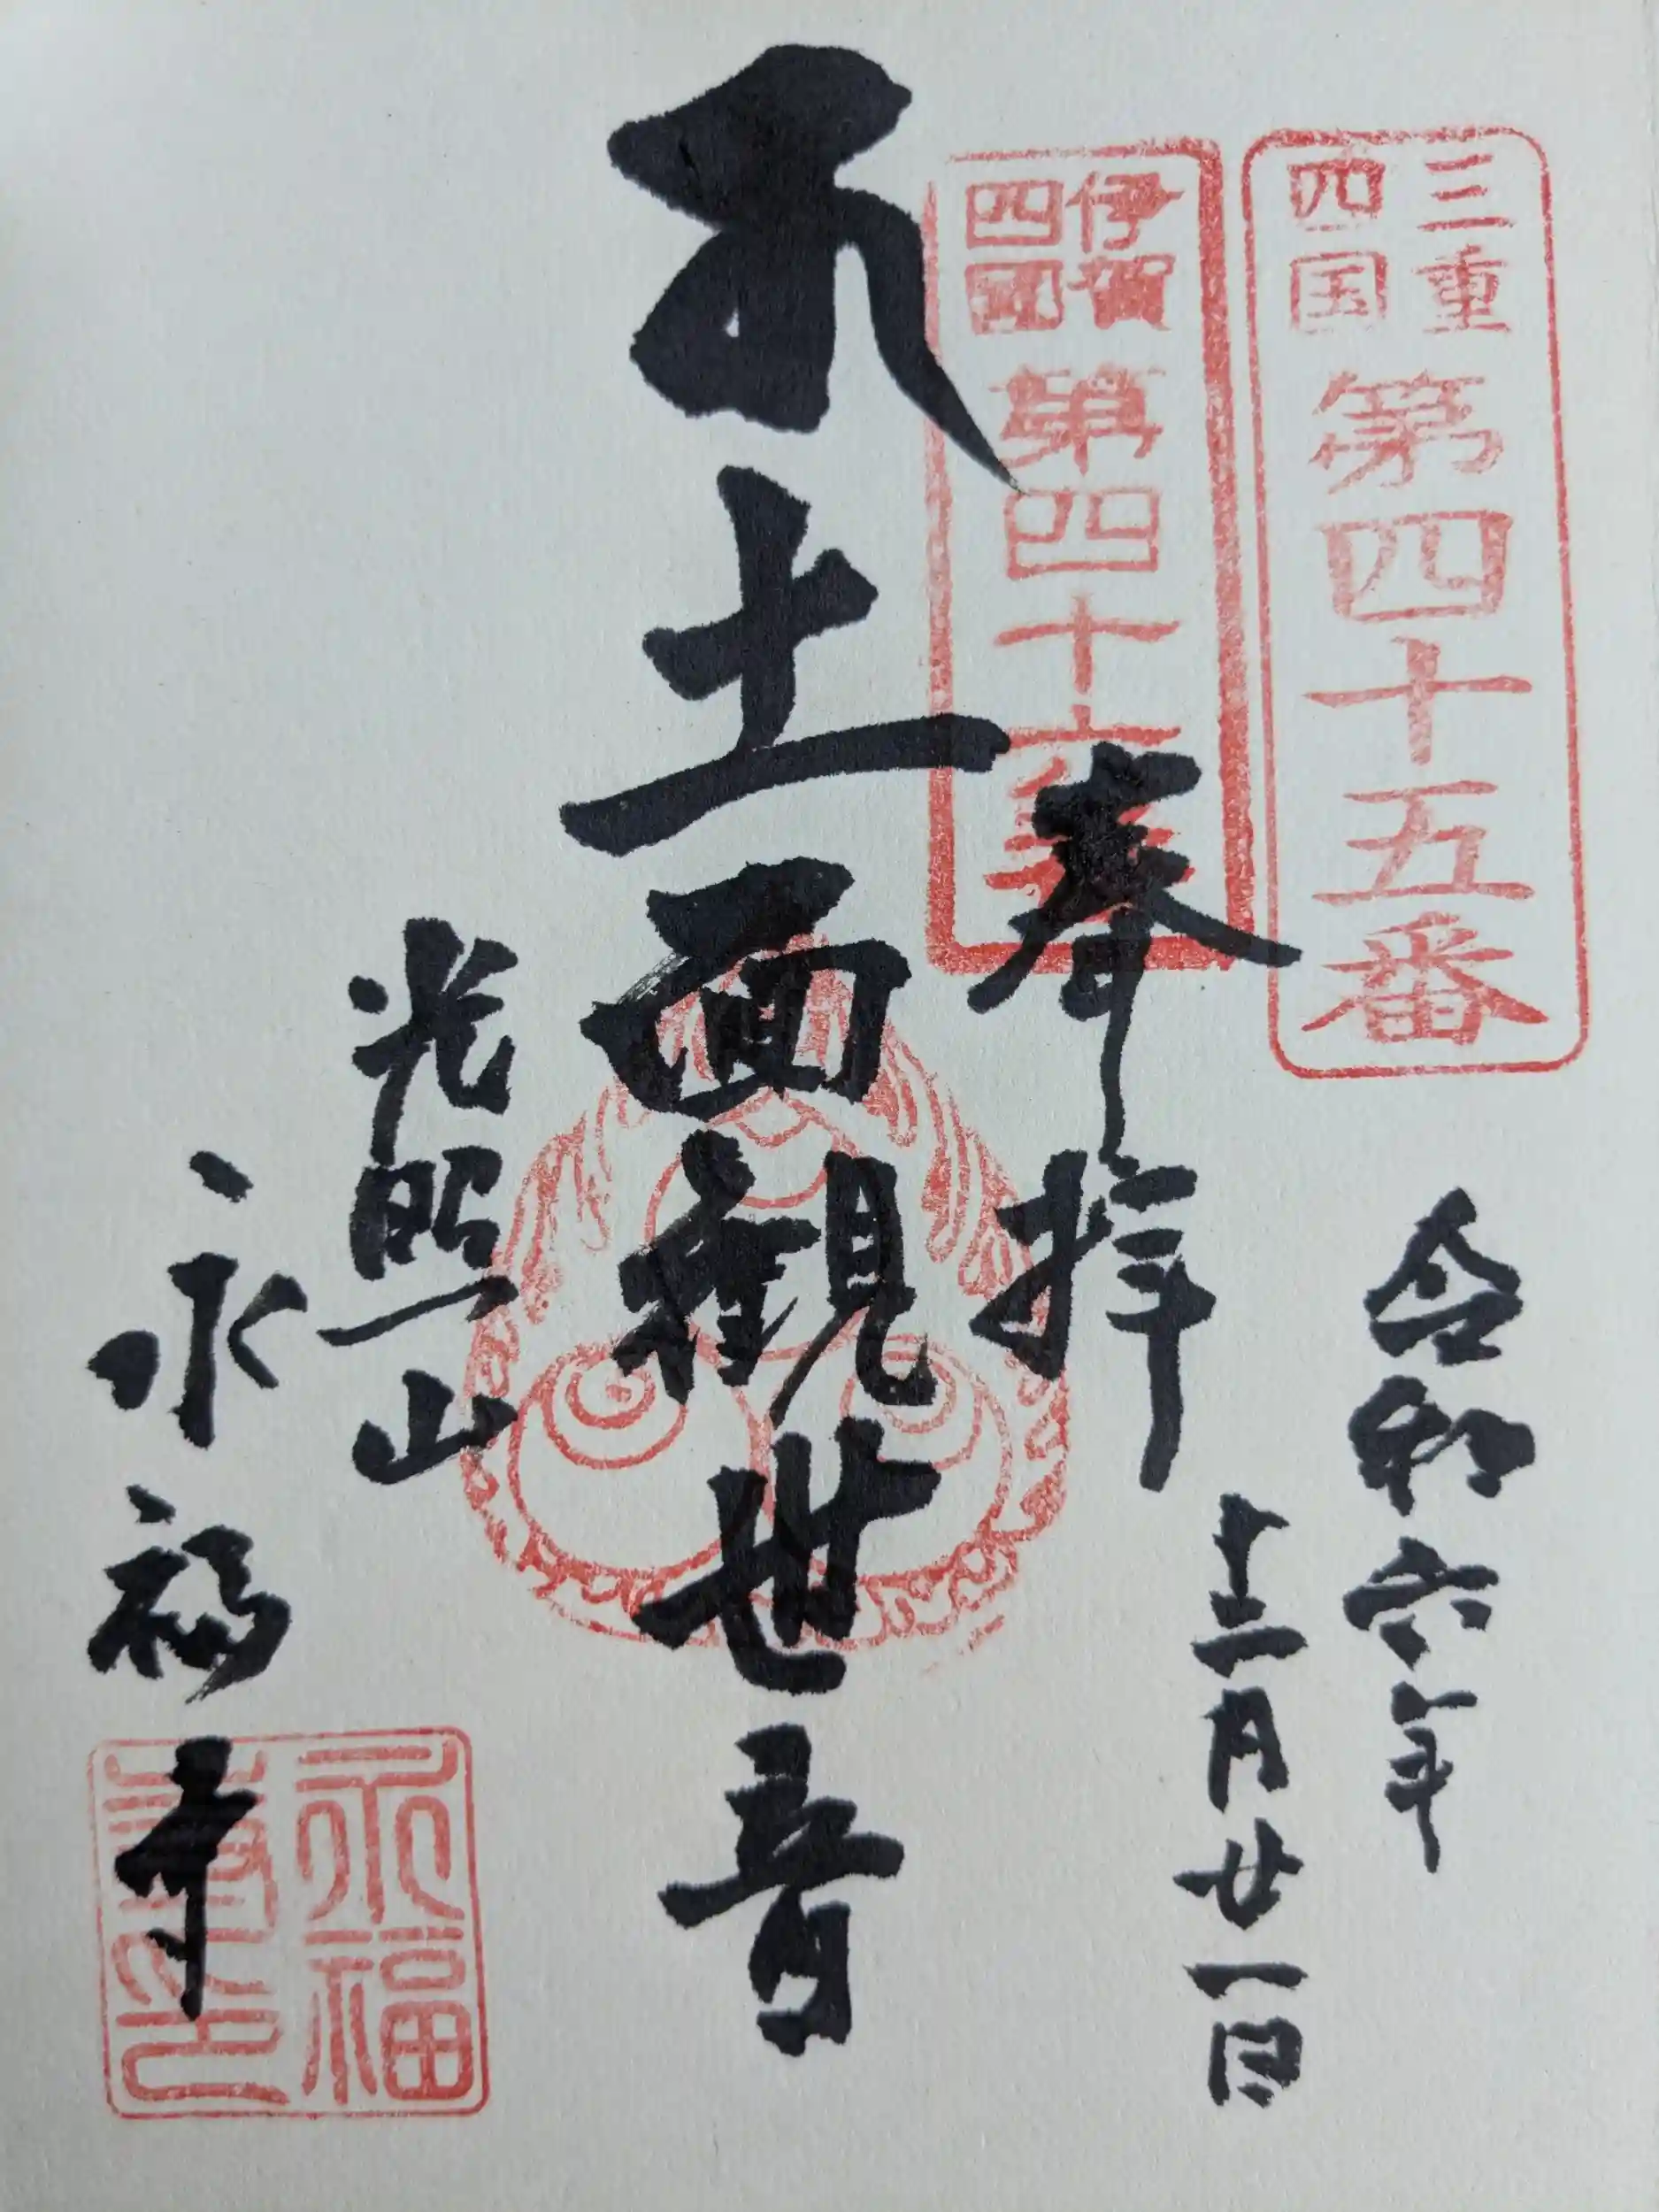 三重
四国
第四十五番
伊賀
四國
第四十六番
令和六年
十二月廿一日
奉拝
十一面観世音
光照山
永福寺
永福
寺印